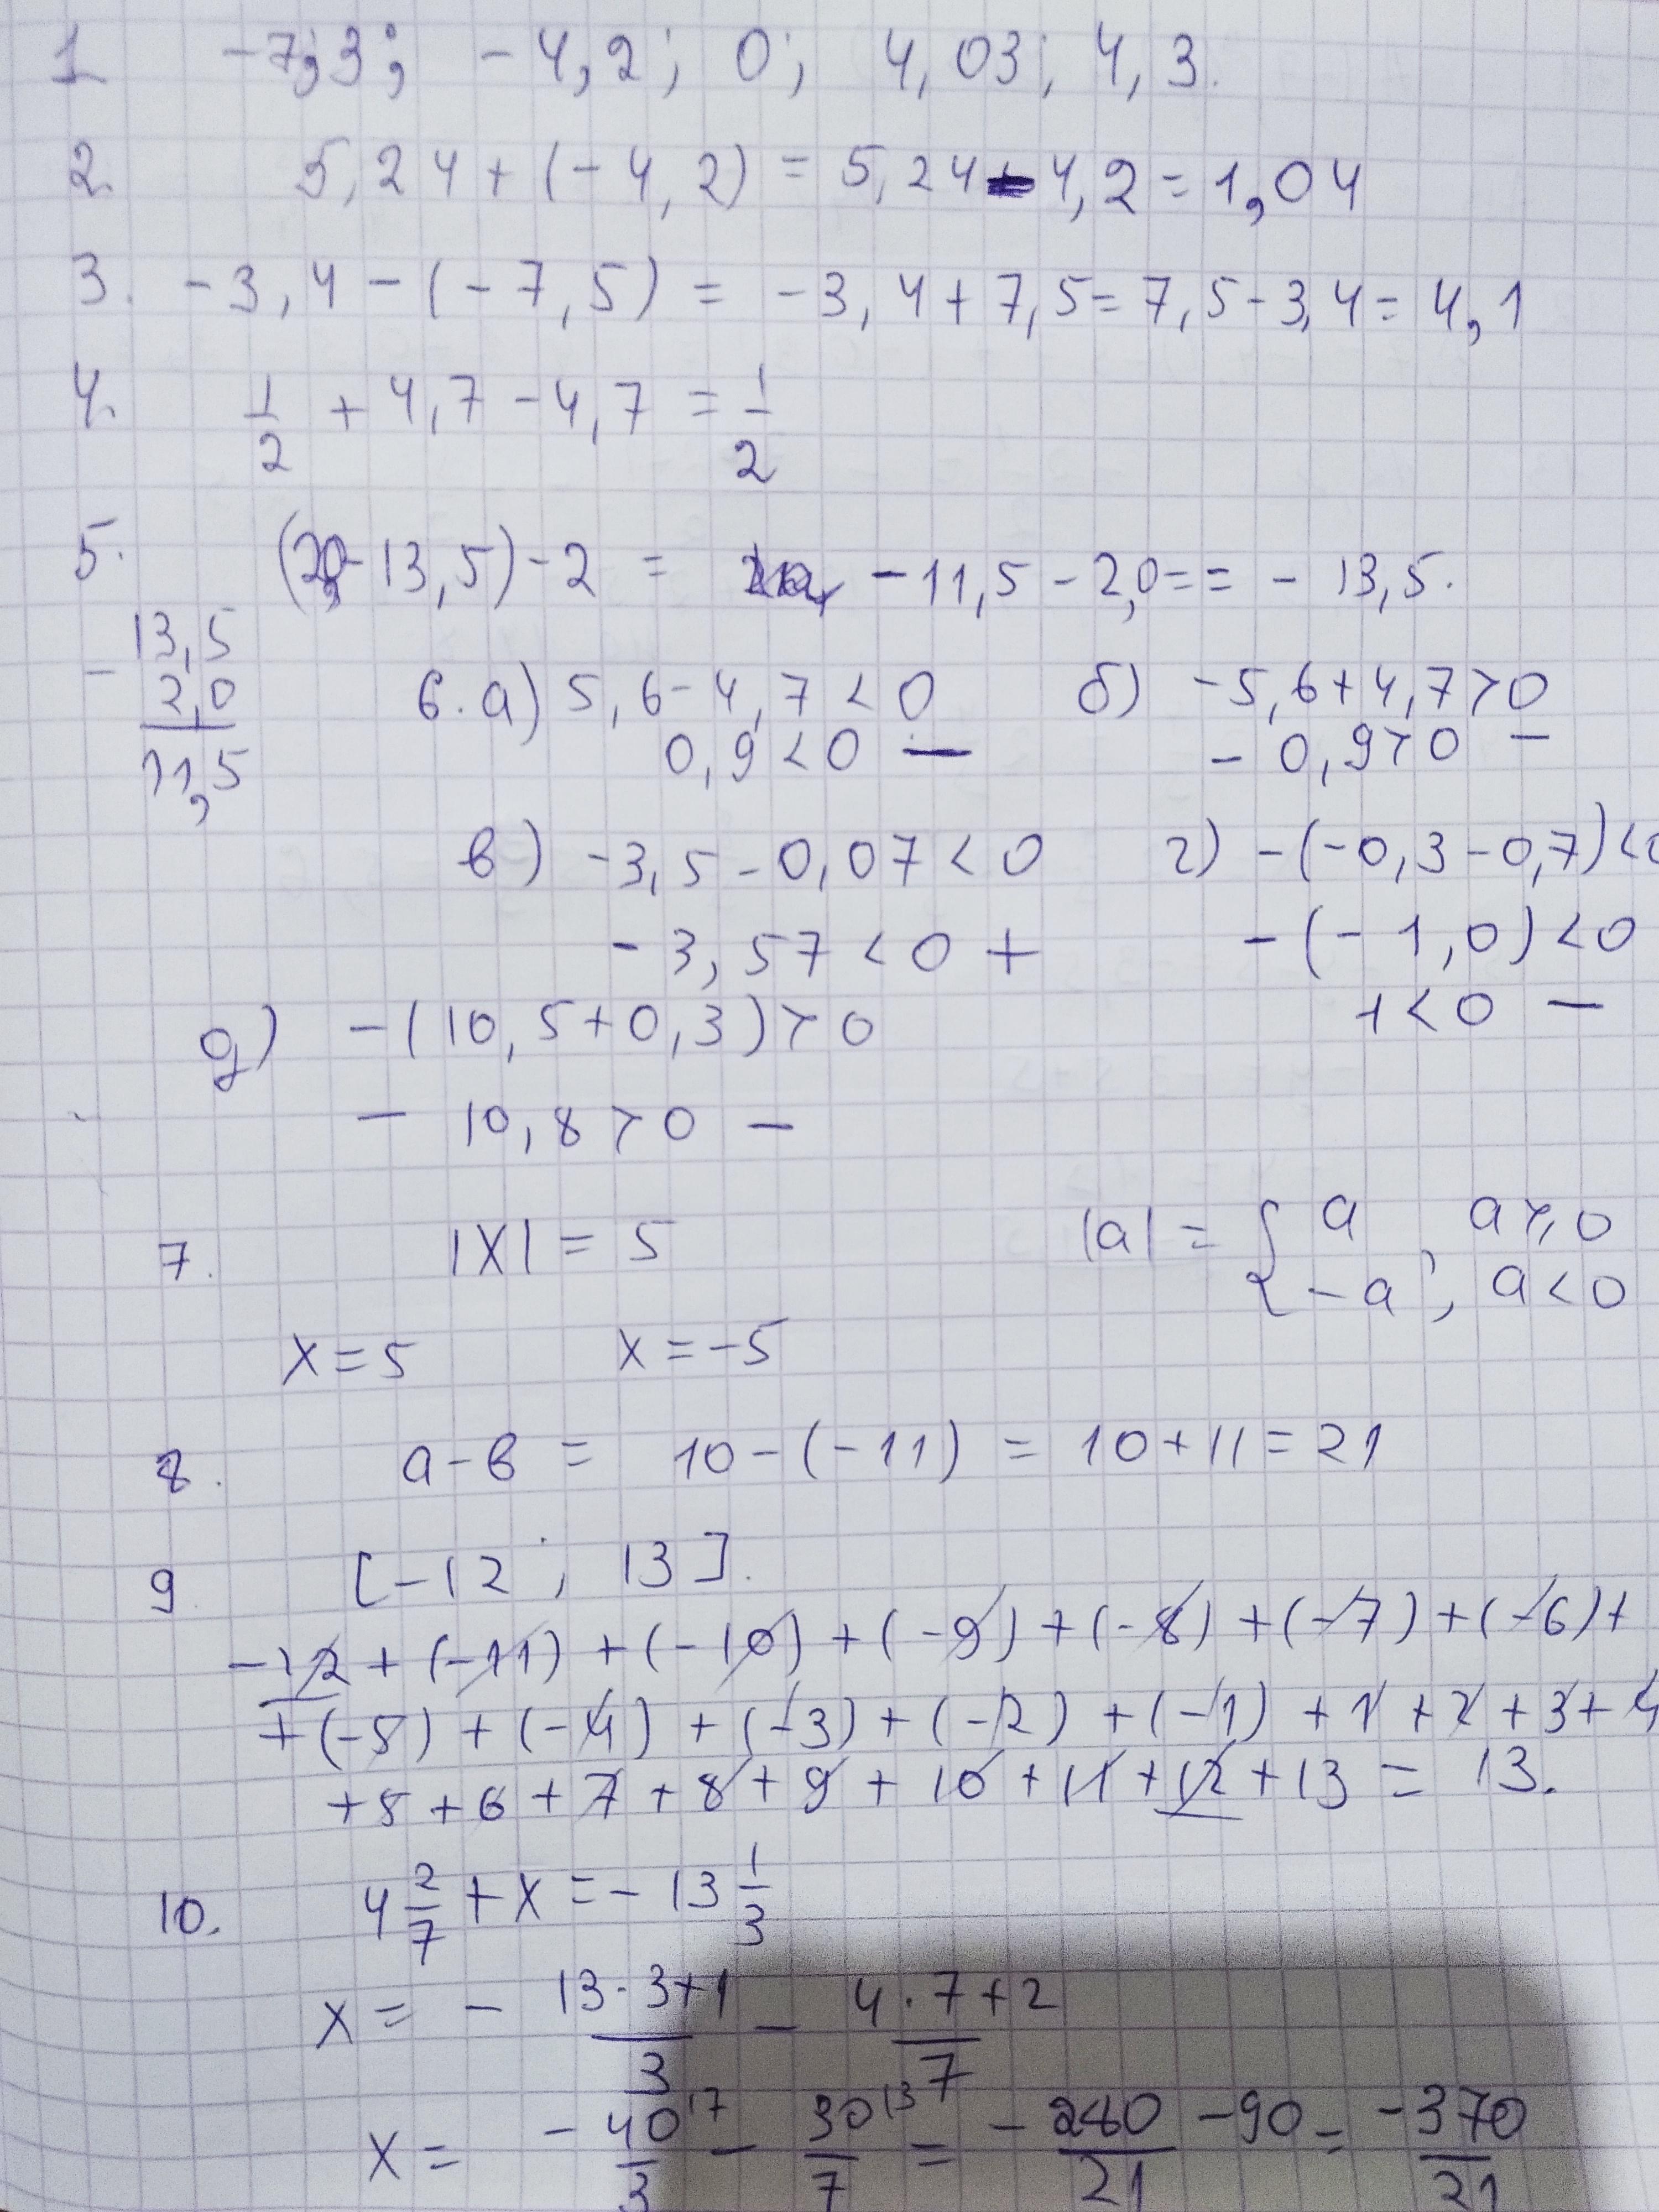 1 -7,3; -4,2; 0; 4,03; 4,3.
2. 5,24+(-4,2) = 5,24-4,2=1,04
3. -3,4-(-7,5) = -3,4+7,5=7,5-3,4=4,1
4. 1/2 + 4,7-4,7 = 1/2
5. (2-13,5)-2 = -11,5-2,0== -13,5.
- 13,5
2,0
11,5
6. а) 5,6-4,7<0 б) -5,6+4,7>0
0,9<0 — -0,9>0 —
в) -3,5-0,07<0 г) -(-0,3-0,7)<0
-3,57<0 + -(-1,0)<0
1<0 —
д) -(10,5+0,3)>0
-10,8>0 —
7. |x| = 5 |a| = { a, a⩾0
-a, a<0
x=5 x=-5
8. a-в = 10-(-11) = 10+11=21
9 [-12; 13].
-12+(-11)+(-10)+(-9)+(-8)+(-7)+(-6)+
+(-5)+(-4)+(-3)+(-2)+(-1)+1+2+3+4
+5+6+7+8+9+10+11+12+13 = 13.
10. 4 2/7 + x = -13 1/3
x = - (13·3+1)/3 - (4·7+2)/7
x = - 40/3 |7 - 30/7 |3 = - 280/21 -90 = -370/21